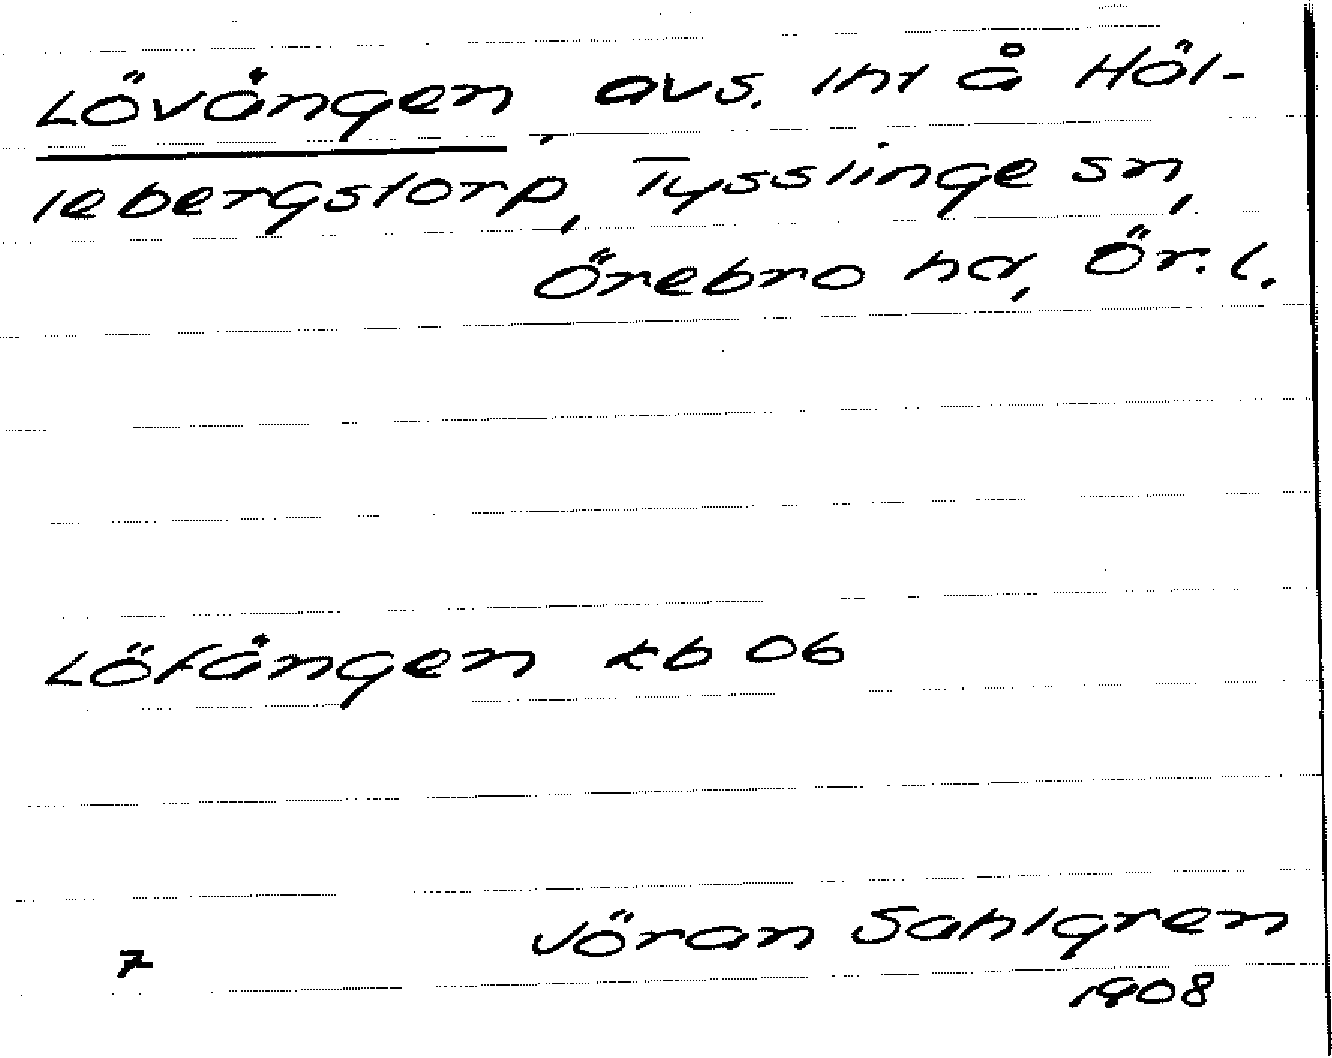 Lövången, avs. lht å Höl-
lebergstorp, Tysslinge sn,
Örebro hd, Ör. l.
Löfången kb 06
Jöran Sahlgren
7
1908